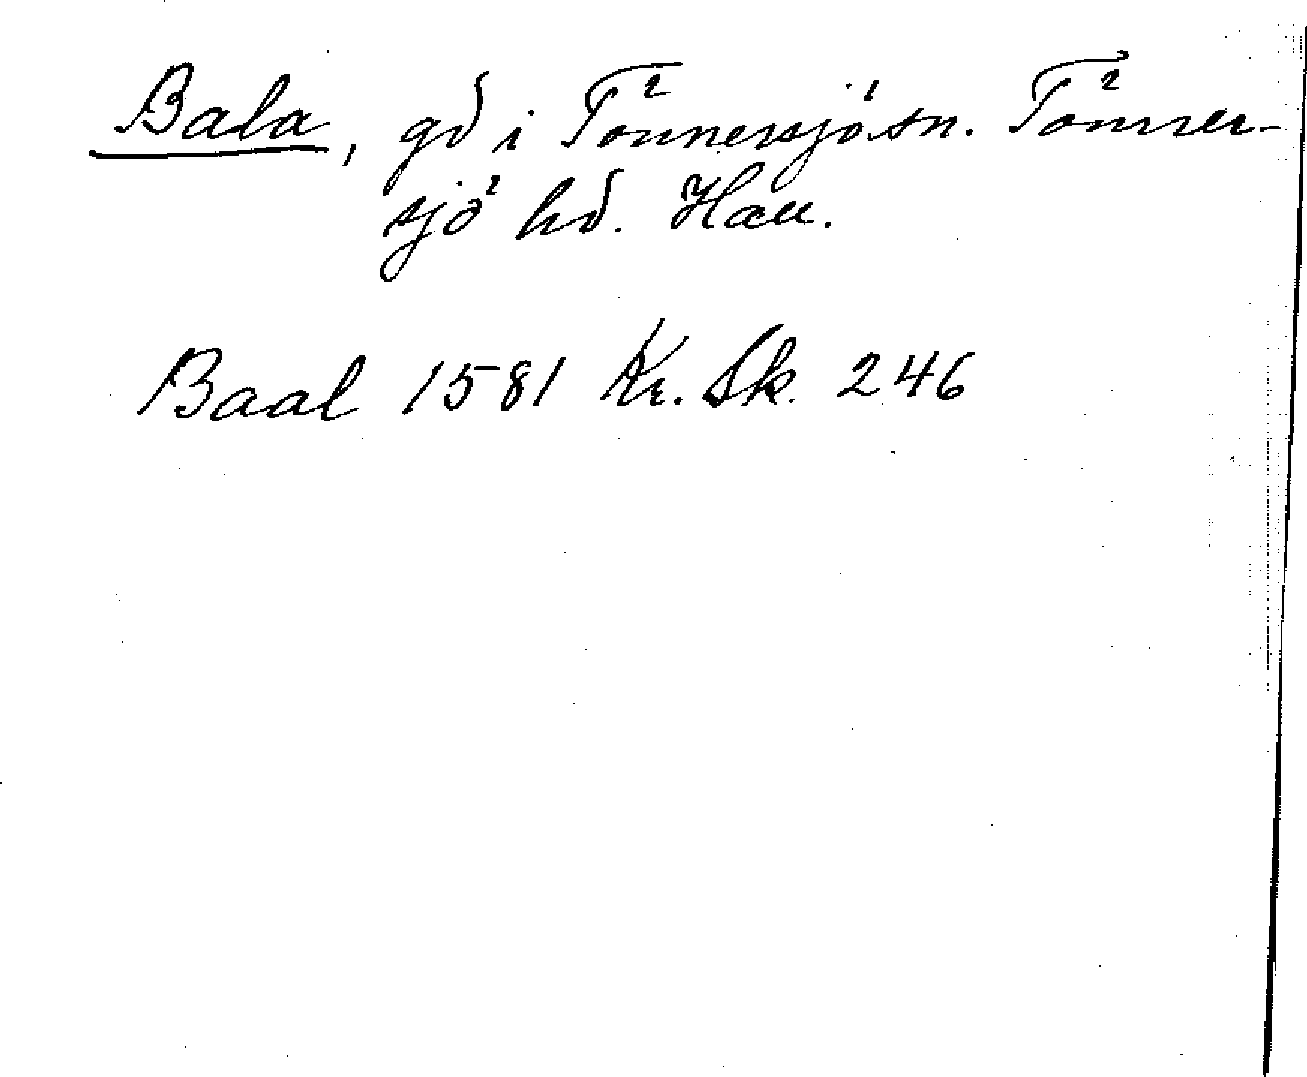 Bala, gd i Tönnersjö sn. Tönner-
sjö hd. Hall.
Baal 1581 Kr. Sk. 246